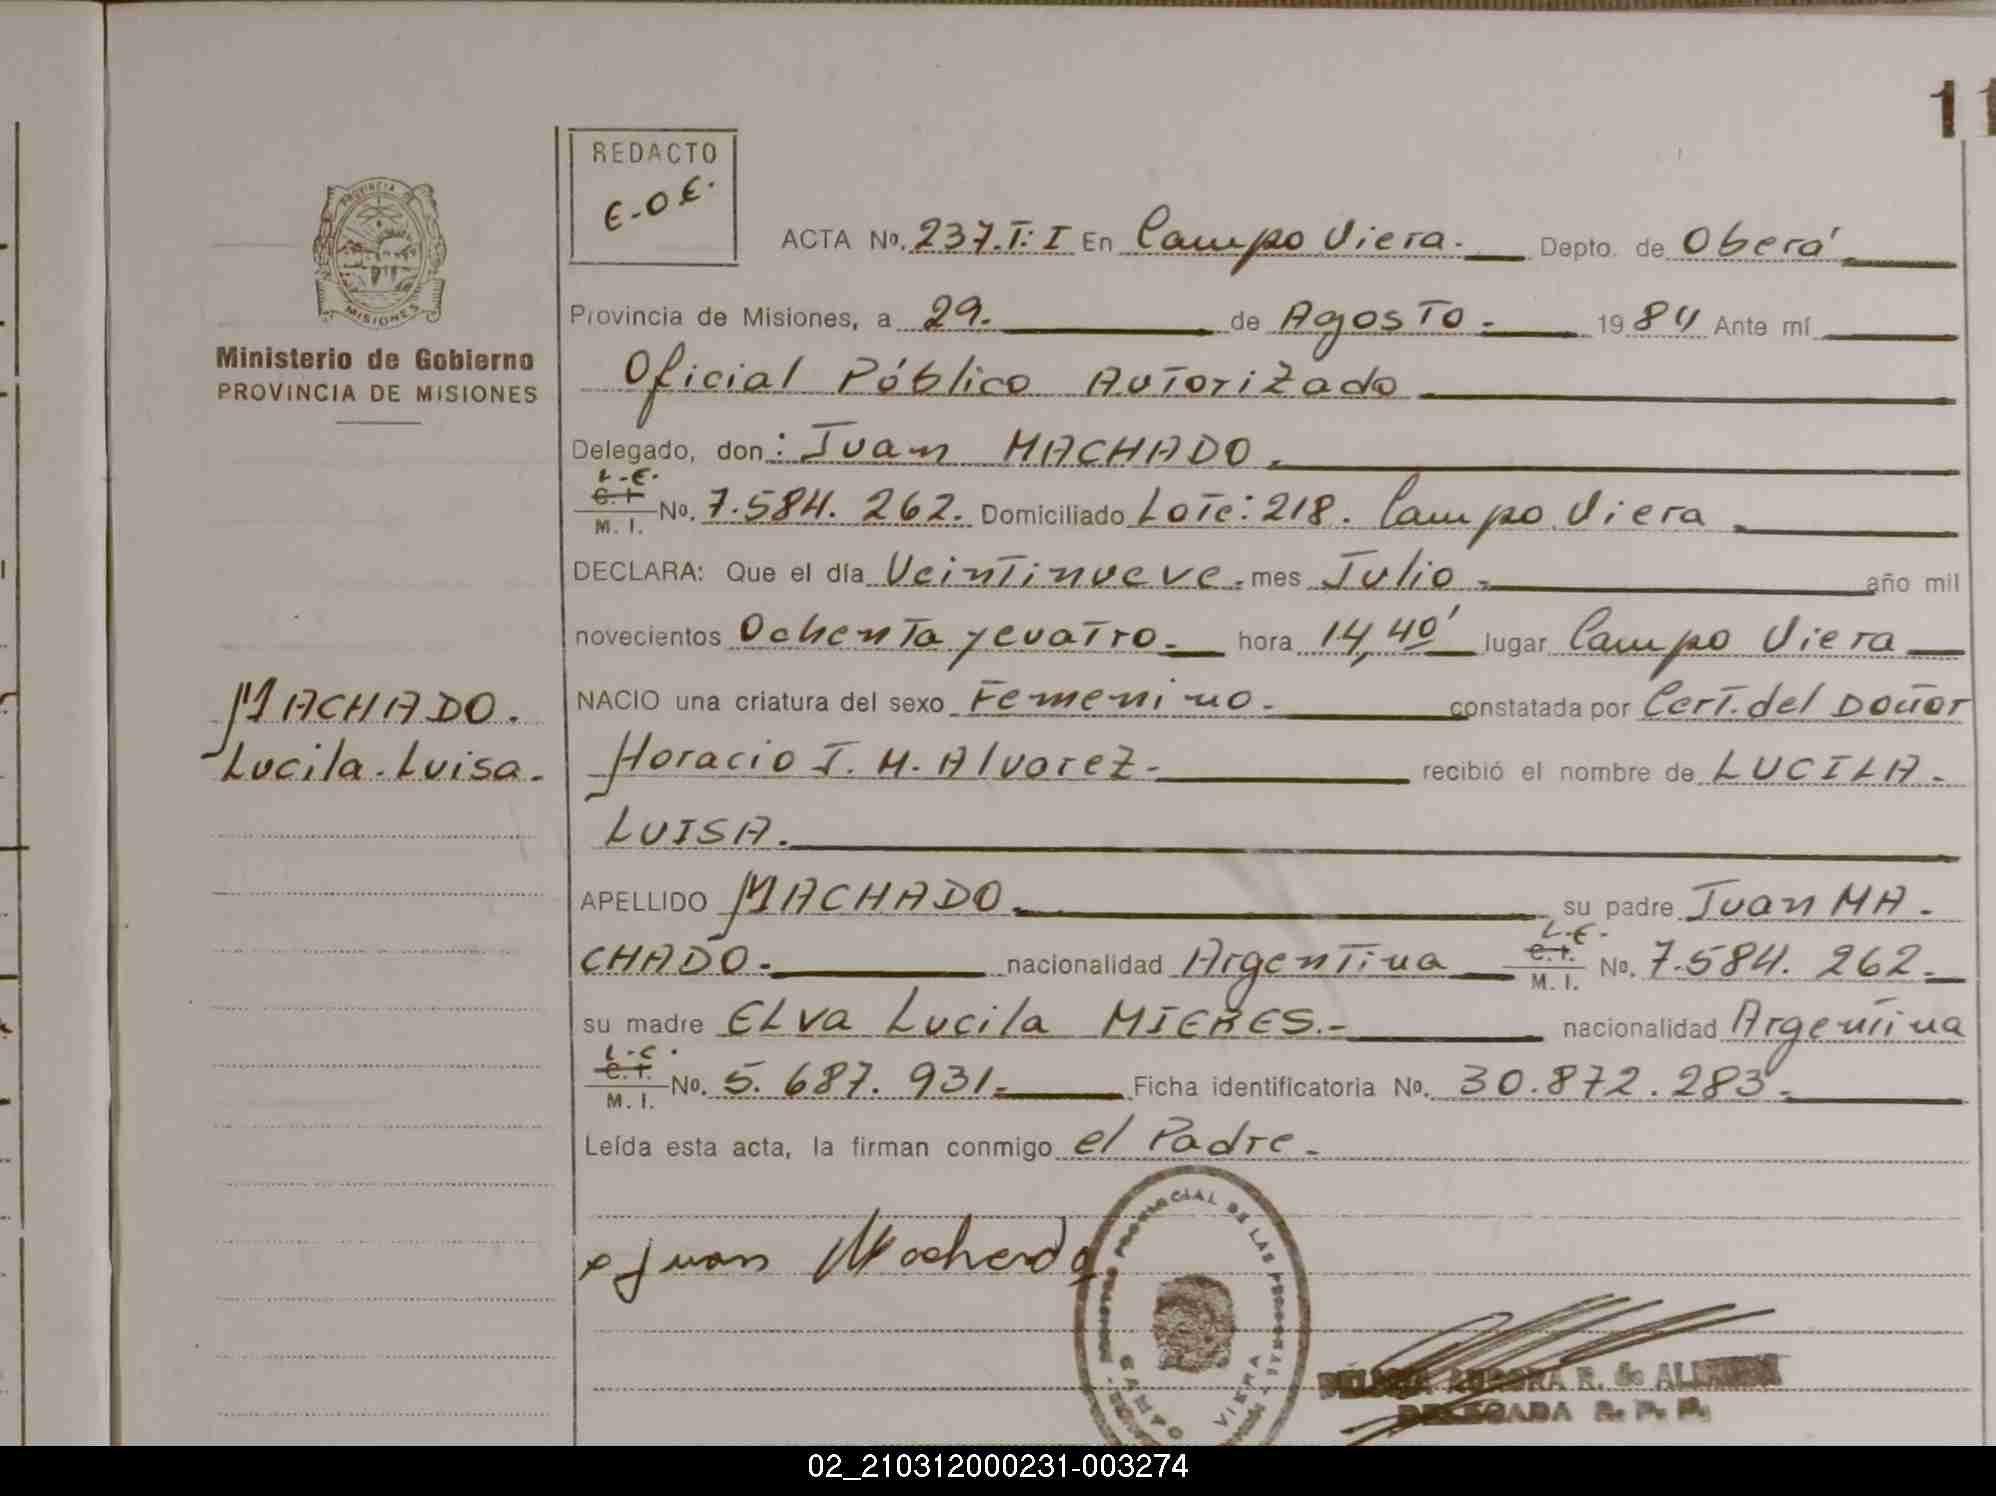 11
REDACTO
E.O.E.
PROVINCIA DE
MISIONES
Ministerio de Gobierno
PROVINCIA DE MISIONES
MACHADO.
Lucila. Luisa.
ACTA No. 237.T:I En Campo Viera. Depto. de Oberá
Provincia de Misiones, a 29. de Agosto. 1984 Ante mí
Oficial Público Autorizado
Delegado, don: Juan MACHADO.
L.E.
C.I.
M. I. No. 7.584.262. Domiciliado Lote: 218. Campo Viera
DECLARA: Que el día Veintinueve. mes Julio. año mil
novecientos Ochenta y cuatro. hora 14,40' lugar Campo Viera
NACIO una criatura del sexo Femenino. constatada por Cert. del Doctor
Horacio J. M. Alvarez. recibió el nombre de LUCILA.
LUISA.
APELLIDO MACHADO su padre Juan MA.
L.E.
C.I.
CHADO. nacionalidad Argentina M. I. No. 7.584.262.
su madre ELva Lucila MIERES.- nacionalidad Argentina
L.C.
C.I.
M. I. No. 5.687.931. Ficha identificatoria No. 30.872.283.
Leída esta acta, la firman conmigo el Padre.
Juan Machado
PROVINCIAL DE LAS PERSONAS
CAMPO VIERA
AURORA R. de
DELEGADA R. P. P.
02_210312000231-003274